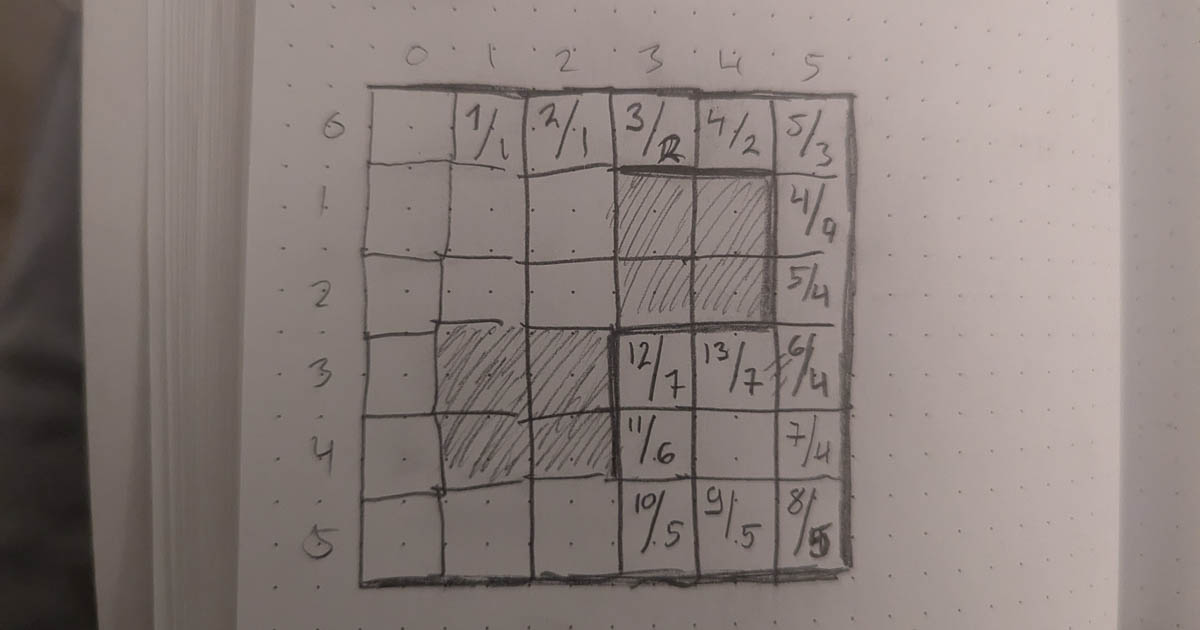 0 1 2 3 4 5
0 1/1 2/1 3/2 4/2 5/3
1 4/4
2 5/4
3 12/7 13/7 6/4
4 11/6 7/4
5 10/5 9/5 8/5